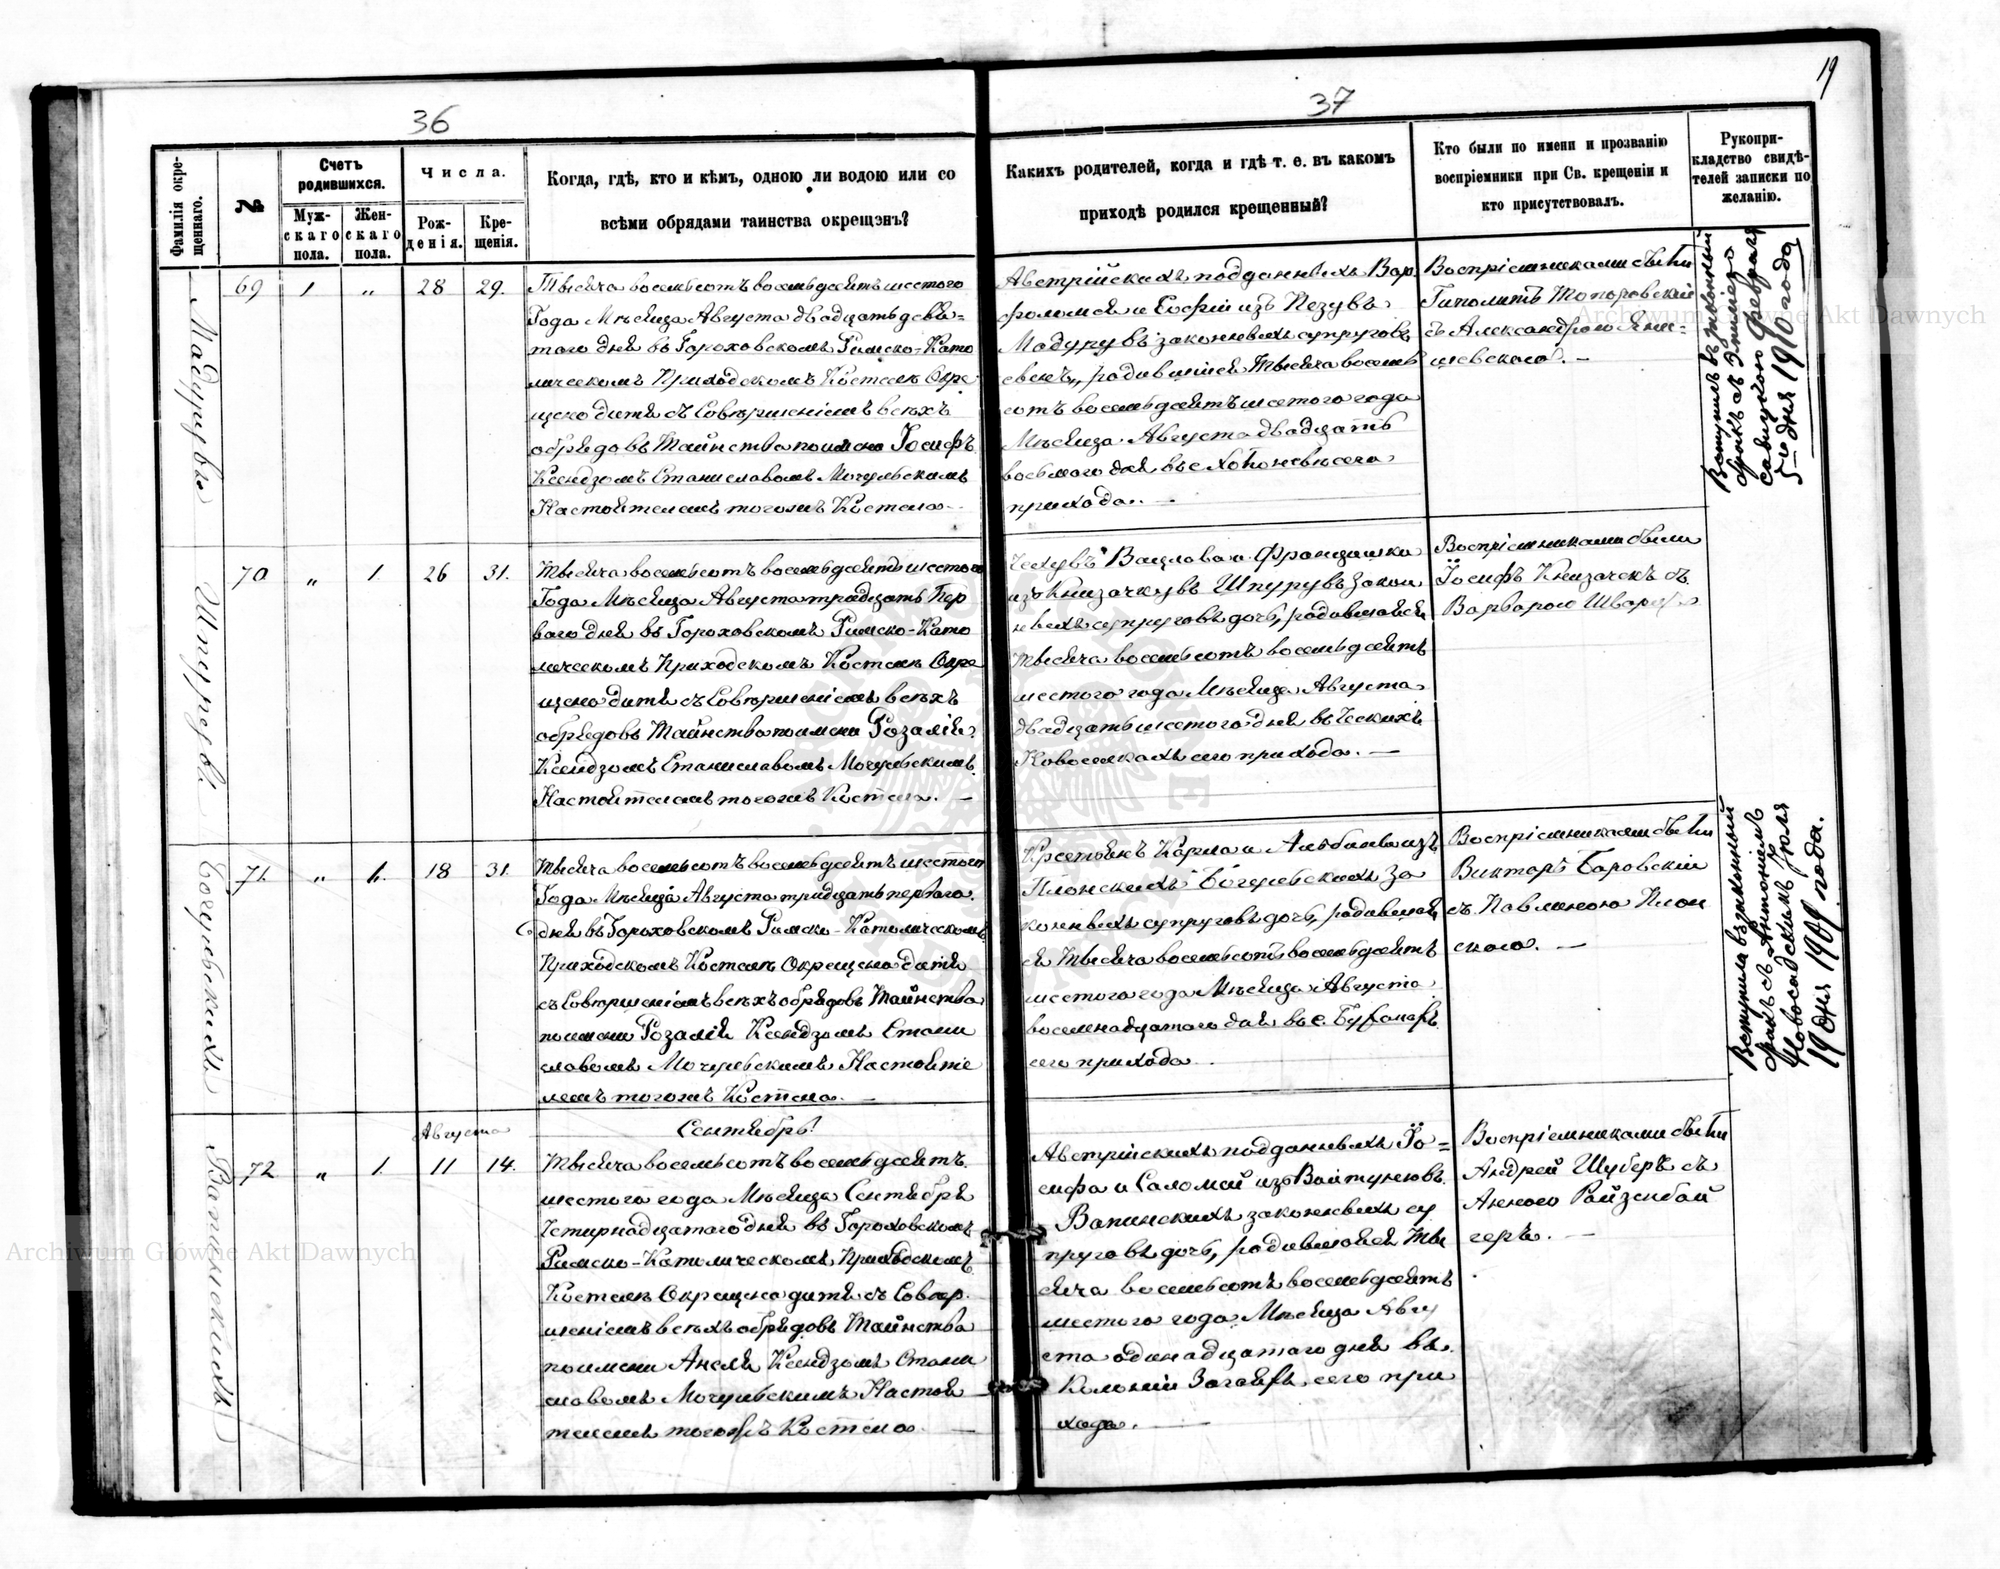 36
37
19
Фамилія окре-
щеннаго.
№
Счетъ
родившихся.
Муж-
скаго
пола.
Жен-
скаго
пола.
Числа.
Рож-
денія.
Кре-
щенія.
Когда, гдѣ, кто и кѣмъ, одною ли водою или со
всѣми обрядами таинства окрещэнъ?
Какихъ родителей, когда и гдѣ т. е. въ какомъ
приходѣ родился крещенный?
Кто были по имени и прозванію
воспріемники при Св. крещеніи и
кто присутствовалъ.
Рукопри-
кладство свидѣ-
телей записки по
желанію.
Мадурувъ
69 1 „ 28 29.
Тысяча восемьсотъ восемьдесятъ шестого
Года Мѣсяца Августа двадцать девя=
таго дня въ Гороховскомъ Римско-Като
лическомъ Приходскомъ Костелѣ Окре
щено дитя съ Совершеніемъ всѣхъ
обрядовъ Таинства по имени Іосифъ
Ксендзомъ Станиславомъ Мочульскимъ
Настоятелемъ тогожъ Костела.
Австрійскихъ подданныхъ Вар
фоломея и Софіи изъ
Мадурувъ законныхъ супруговъ
сынъ, родившійся Тысяча восемь
сотъ восемьдесятъ шестого года
Мѣсяца Августа двадцать
восьмого дня въ с. сего
прихода. —
Воспріемниками были
Гиполитъ Топоровскій
съ Александрою Яни=
шевского. —
Вступилъ въ законный
бракъ съ Эмиліею
Савицкою Февраля
5-го дня 1910 года
Шпурувъ
70 „ 1 26 31.
Тысяча восемьсотъ восемьдесятъ шестого
Года Мѣсяца Августа тридцать Пер
ваго дня въ Гороховскомъ Римско-Като
лическомъ Приходскомъ Костелѣ Окре
щено дитя съ Совершеніемъ всѣхъ
обрядовъ Таинства по имени Розалія
Ксендзомъ Станиславомъ Мочульскимъ
Настоятелемъ тогожъ Костела. —
Чехувъ Вацлава и Францишки
изъ Князачкувъ Шпурувъ Закон
ныхъ супруговъ дочь, родившаяся
Тысяча восемьсотъ восемьдесятъ
шестого года Мѣсяца Августа
двадцать шестого дня въ Ческихъ
Новоселкахъ сего прихода. —
Воспріемниками были
Іосифъ Князачекъ съ
Варварою
Богульскихъ
71 „ 1. 18 31.
Тысяча восемьсотъ восемьдесятъ шестого
Года Мѣсяца Августа тридцать первого
дня въ Гороховскомъ Римско-Католическомъ
Приходскомъ Костелѣ Окрещено дитя
съ Совершеніемъ всѣхъ обрядовъ Таинства
по имени Розалія Ксендзомъ Стани
славомъ Мочульскимъ Настояте
лемъ тогожъ Костела. —
Крестьянъ Карла и Альбины изъ
Плонскихъ Богульскихъ За
конныхъ супруговъ дочь, родившая
ся Тысяча восемьсотъ восемьдесятъ
шестого года Мѣсяца Августа
восемнадцатого дня въ с.
сего прихода.
Воспріемниками были
Викторъ Баровскій
съ Павлиною Плон
ского. —
Вступила въ законный
бракъ съ Антономъ
Новосадскимъ Іюля
19 дня 1909 года.
Сентябрь!
Августа
Вапинскихъ
72 „ 1. 11 14.
Тысяча восемьсотъ восемьдесятъ
шестого года Мѣсяца Сентября
Четырнадцатого дня въ Гороховскомъ
Римско-Католическомъ Приходскомъ
Костелѣ Окрещено дитя съ Совер
шеніемъ всѣхъ обрядовъ Таинства
по имени Анеля Ксендзомъ Стани
славомъ Мочульскимъ Настоя
телемъ тогожъ Костела. —
Австрійскихъ подданныхъ Іо=
сифа и Саломеи изъ Войтунювъ
Вапинскихъ законныхъ су
пруговъ дочь, родившаяся Ты
сяча восемьсотъ восемьдесятъ
шестого года Мѣсяца Авгу
ста одинадцатого дня въ
Колоніи сего при
хода. —
Воспріемниками были
Андрей Шуберъ съ
Анною Райзенбай
геръ. —
Archiwum Główne Akt Dawnych
Archiwum Główne Akt Dawnych